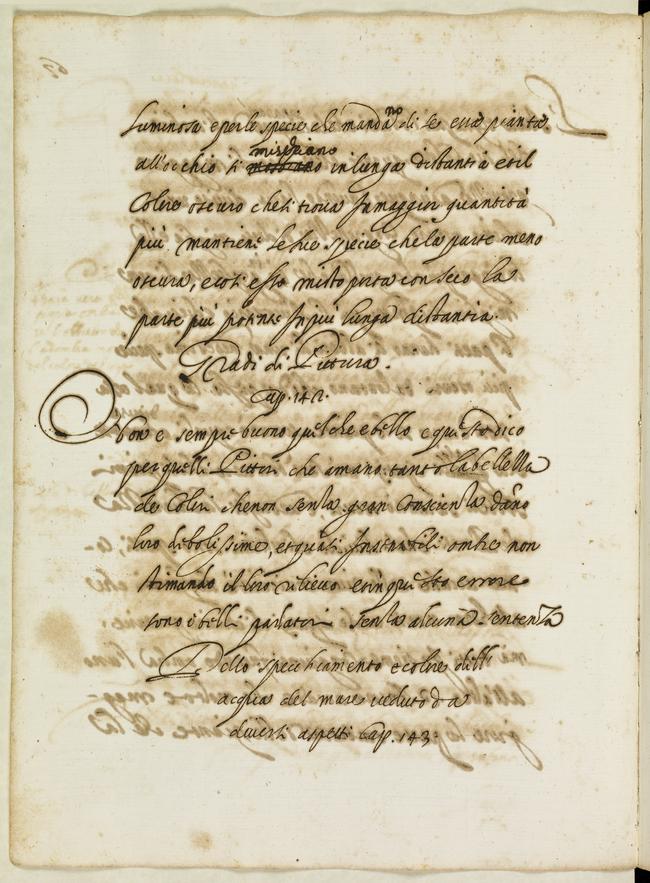 luminosa e per le specie che manda^no di se essa pianta
all'occhio si mischiano in lunga distantia et il
Colore oscuro che si trova in maggior quantità
più mantiene le sue specie che la parte meno
oscura, e così esso misto porta con seco la
parte più potente in più lunga distantia.
Gradi di Pittura.
Cap. 142.
Non e sempre buono quel che e bello e questo dico
per quelli Pittori che amano tanto la bellezza
de Colori che non senza gran Conscienza dano
loro debolissime, et quasi Insensibili ombre non
stimando il loro rilievo et in questo errore
sono i belli parlatori senza alcuna sentenza
Dello specchiamento e colore dell'
acqua del mare veduto da
diversi aspetti Cap. 143.